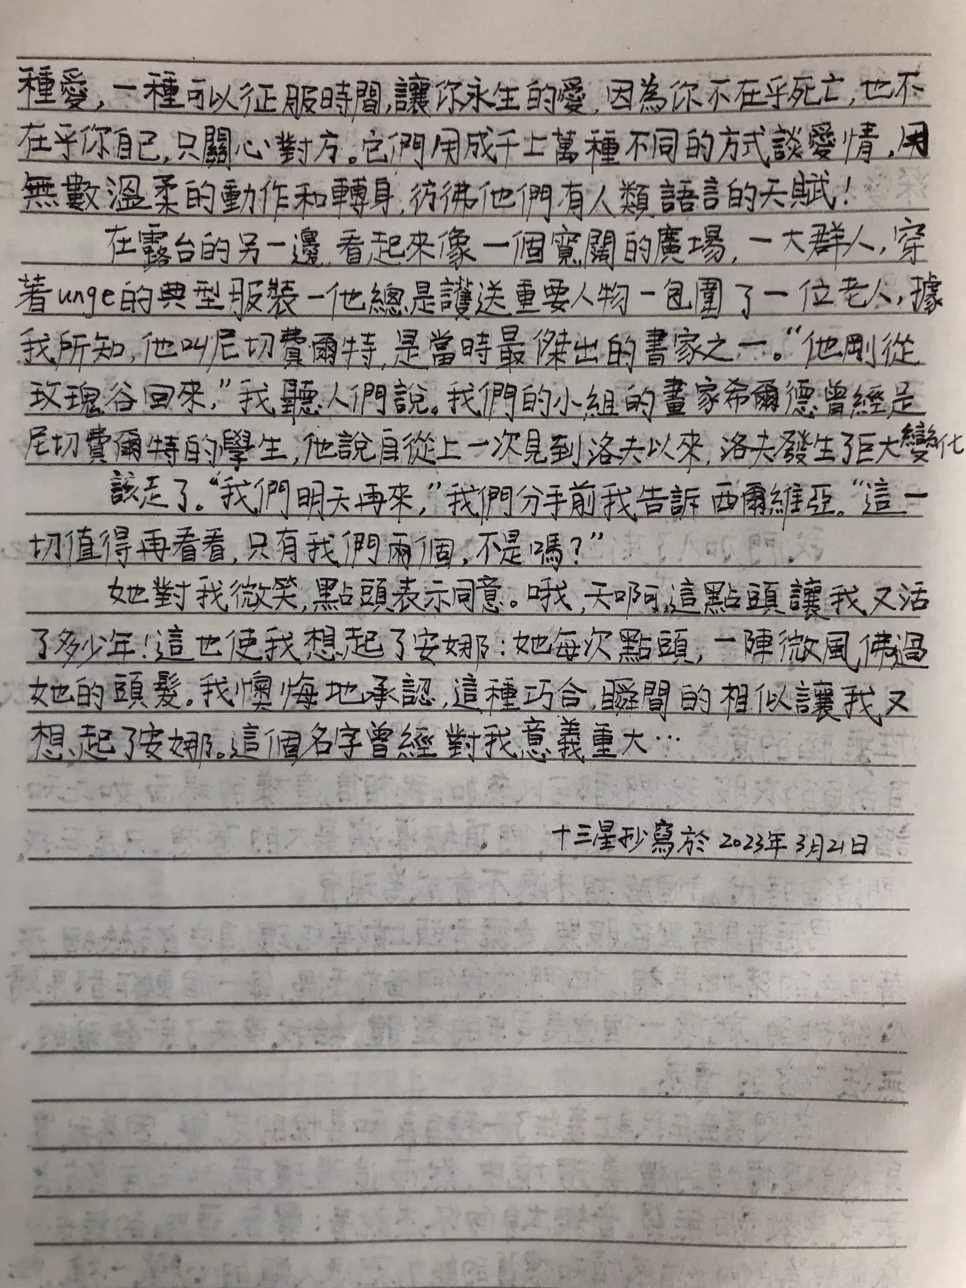 種愛，一種可以征服時間，讓你永生的愛，因為你不在乎死亡，也不
在乎你自己，只關心對方。它們用成千上萬種不同的方式談愛情，用
無數溫柔的動作和轉身，彷彿他們有人類語言的天賦！
在露台的另一邊，看起來像一個寬闊的廣場，一大群人，穿
著unge的典型服裝－他總是護送重要人物－包圍了一位老人，據
我所知，他叫尼切費爾特，是當時最傑出的畫家之一。“他剛從
玫瑰谷回來，”我聽人們說。我們的小組的畫家希爾德曾經是
尼切費爾特的學生，他說自從上一次見到洛夫以來，洛夫發生了巨大變化
該走了。“我們明天再來，”我們分手前我告訴西爾維亞。“這一
切值得再看看，只有我們兩個，不是嗎？”
她對我微笑，點頭表示同意。哦，天啊，這點頭讓我又活
了多少年！這也使我想起了安娜：她每次點頭，一陣微風佛過
她的頭髮。我懊悔地承認，這種巧合，瞬間的相似讓我又
想起了安娜。這個名字曾經對我意義重大…
十三星抄寫於 2023年3月21日